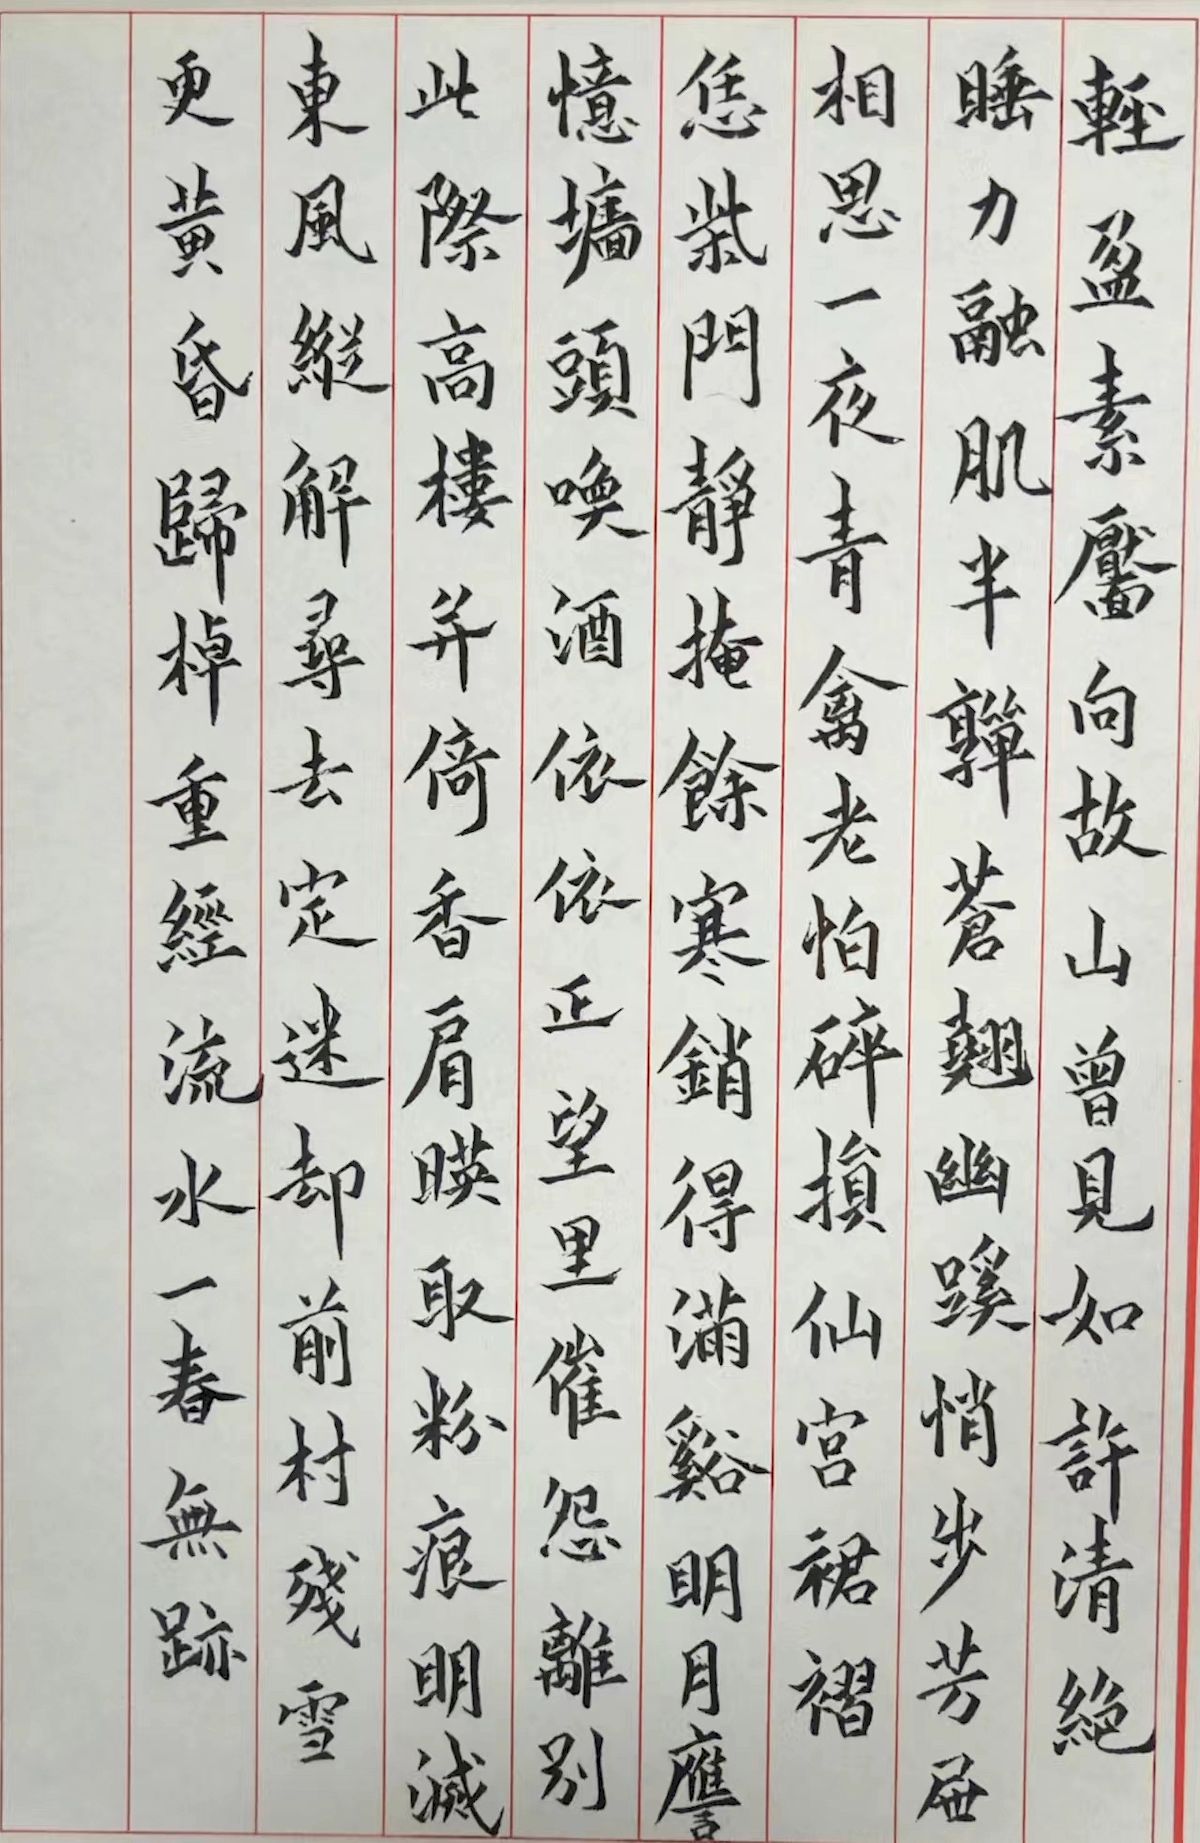 輕盈素靨向故山曾見如許清絶
睡力融肌半嚲蒼翹幽蹊悄步芳屧
相思一夜青禽老怕碎損仙宮裙褶
恁柴門靜掩餘寒銷得滿谿明月譍
憶墻頭喚酒依依正望里催怨離別
此際高樓并倚香肩暎取粉痕明滅
東風縱解尋去定迷却前村殘雪
更黄昏歸棹重經流水一春無跡